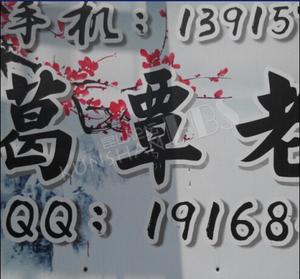 手机：13915
葛覃老
QQ：19168
KUNSHAN BBS